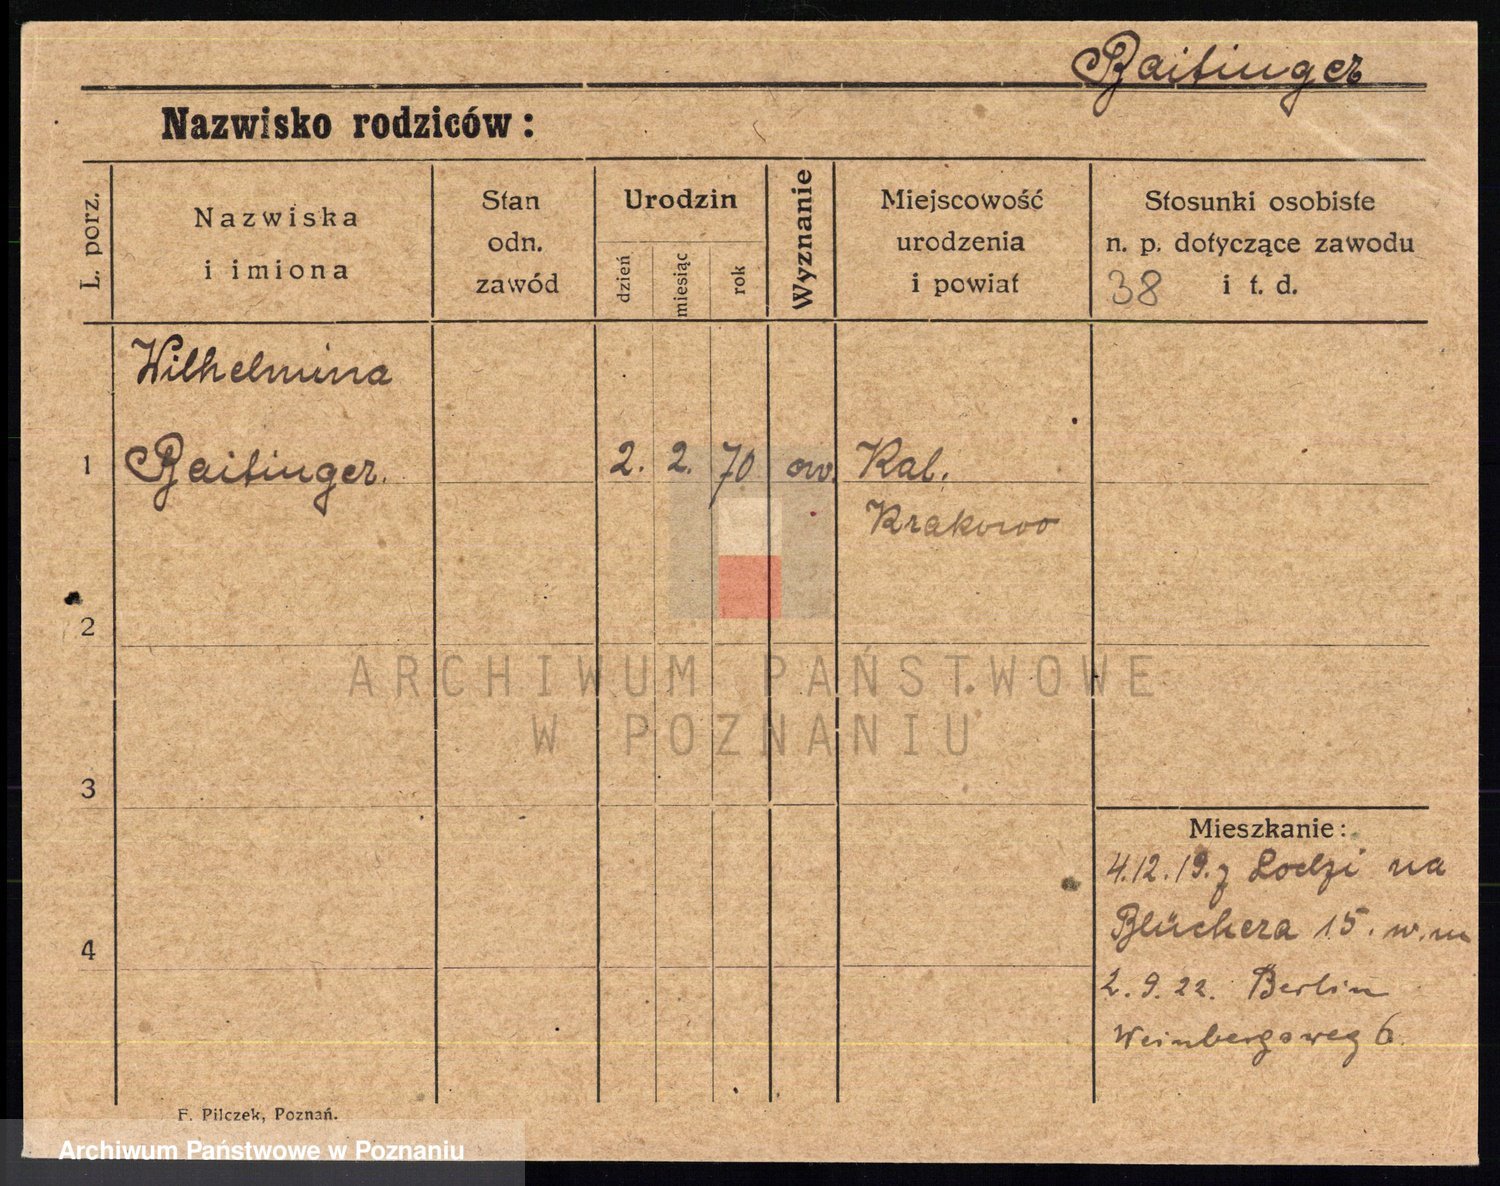 Baitinger
Nazwisko rodziców:
L. porz.
Nazwiska
i imiona
Stan
odn.
zawód
Urodzin
dzień
miesiąc
rok
Wyznanie
Miejscowość
urodzenia
i powiat
Stosunki osobiste
n. p. dotyczące zawodu
38 i t. d.
Wilhelmina
1 Baitinger. 2. 2. 70 ew. Kal.
Krakowo
2
ARCHIWUM PAŃSTWOWE
W POZNANIU
3
Mieszkanie:
4.12.19. z Lodzi na
Blüchera 15. w.m
4
2.9.22. Berlin
Weinbergsweg 6.
F. Pilczek, Poznań.
Archiwum Państwowe w Poznaniu